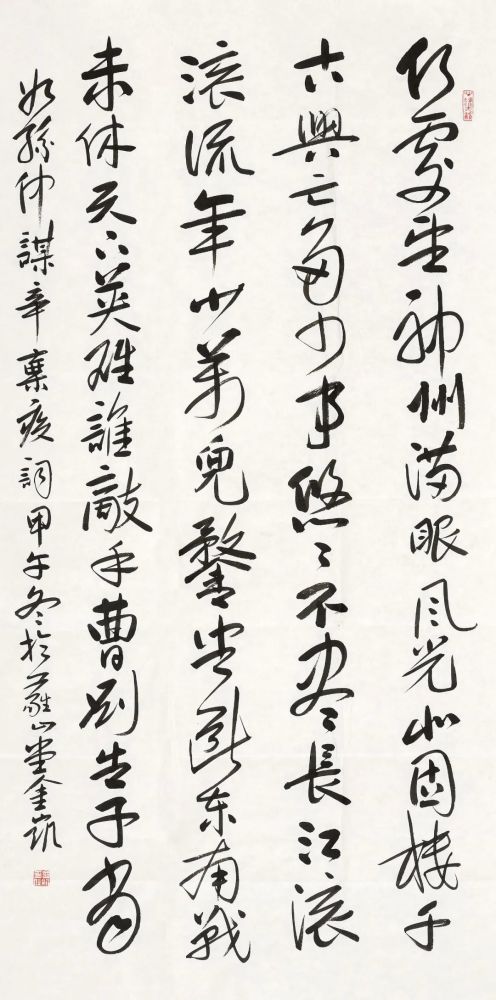 何處望神州满眼风光北固楼千
古興亡多少事悠々不尽長江滚
滚流年少萬兜鍪坐断东南戰
未休天下英雄誰敵手曹刘生子當
如孫仲謀辛棄疾詞甲午冬於山堂金凱